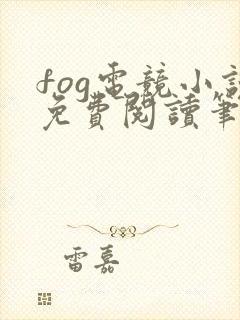 fog電競小說
免費閱讀筆
雷嘉